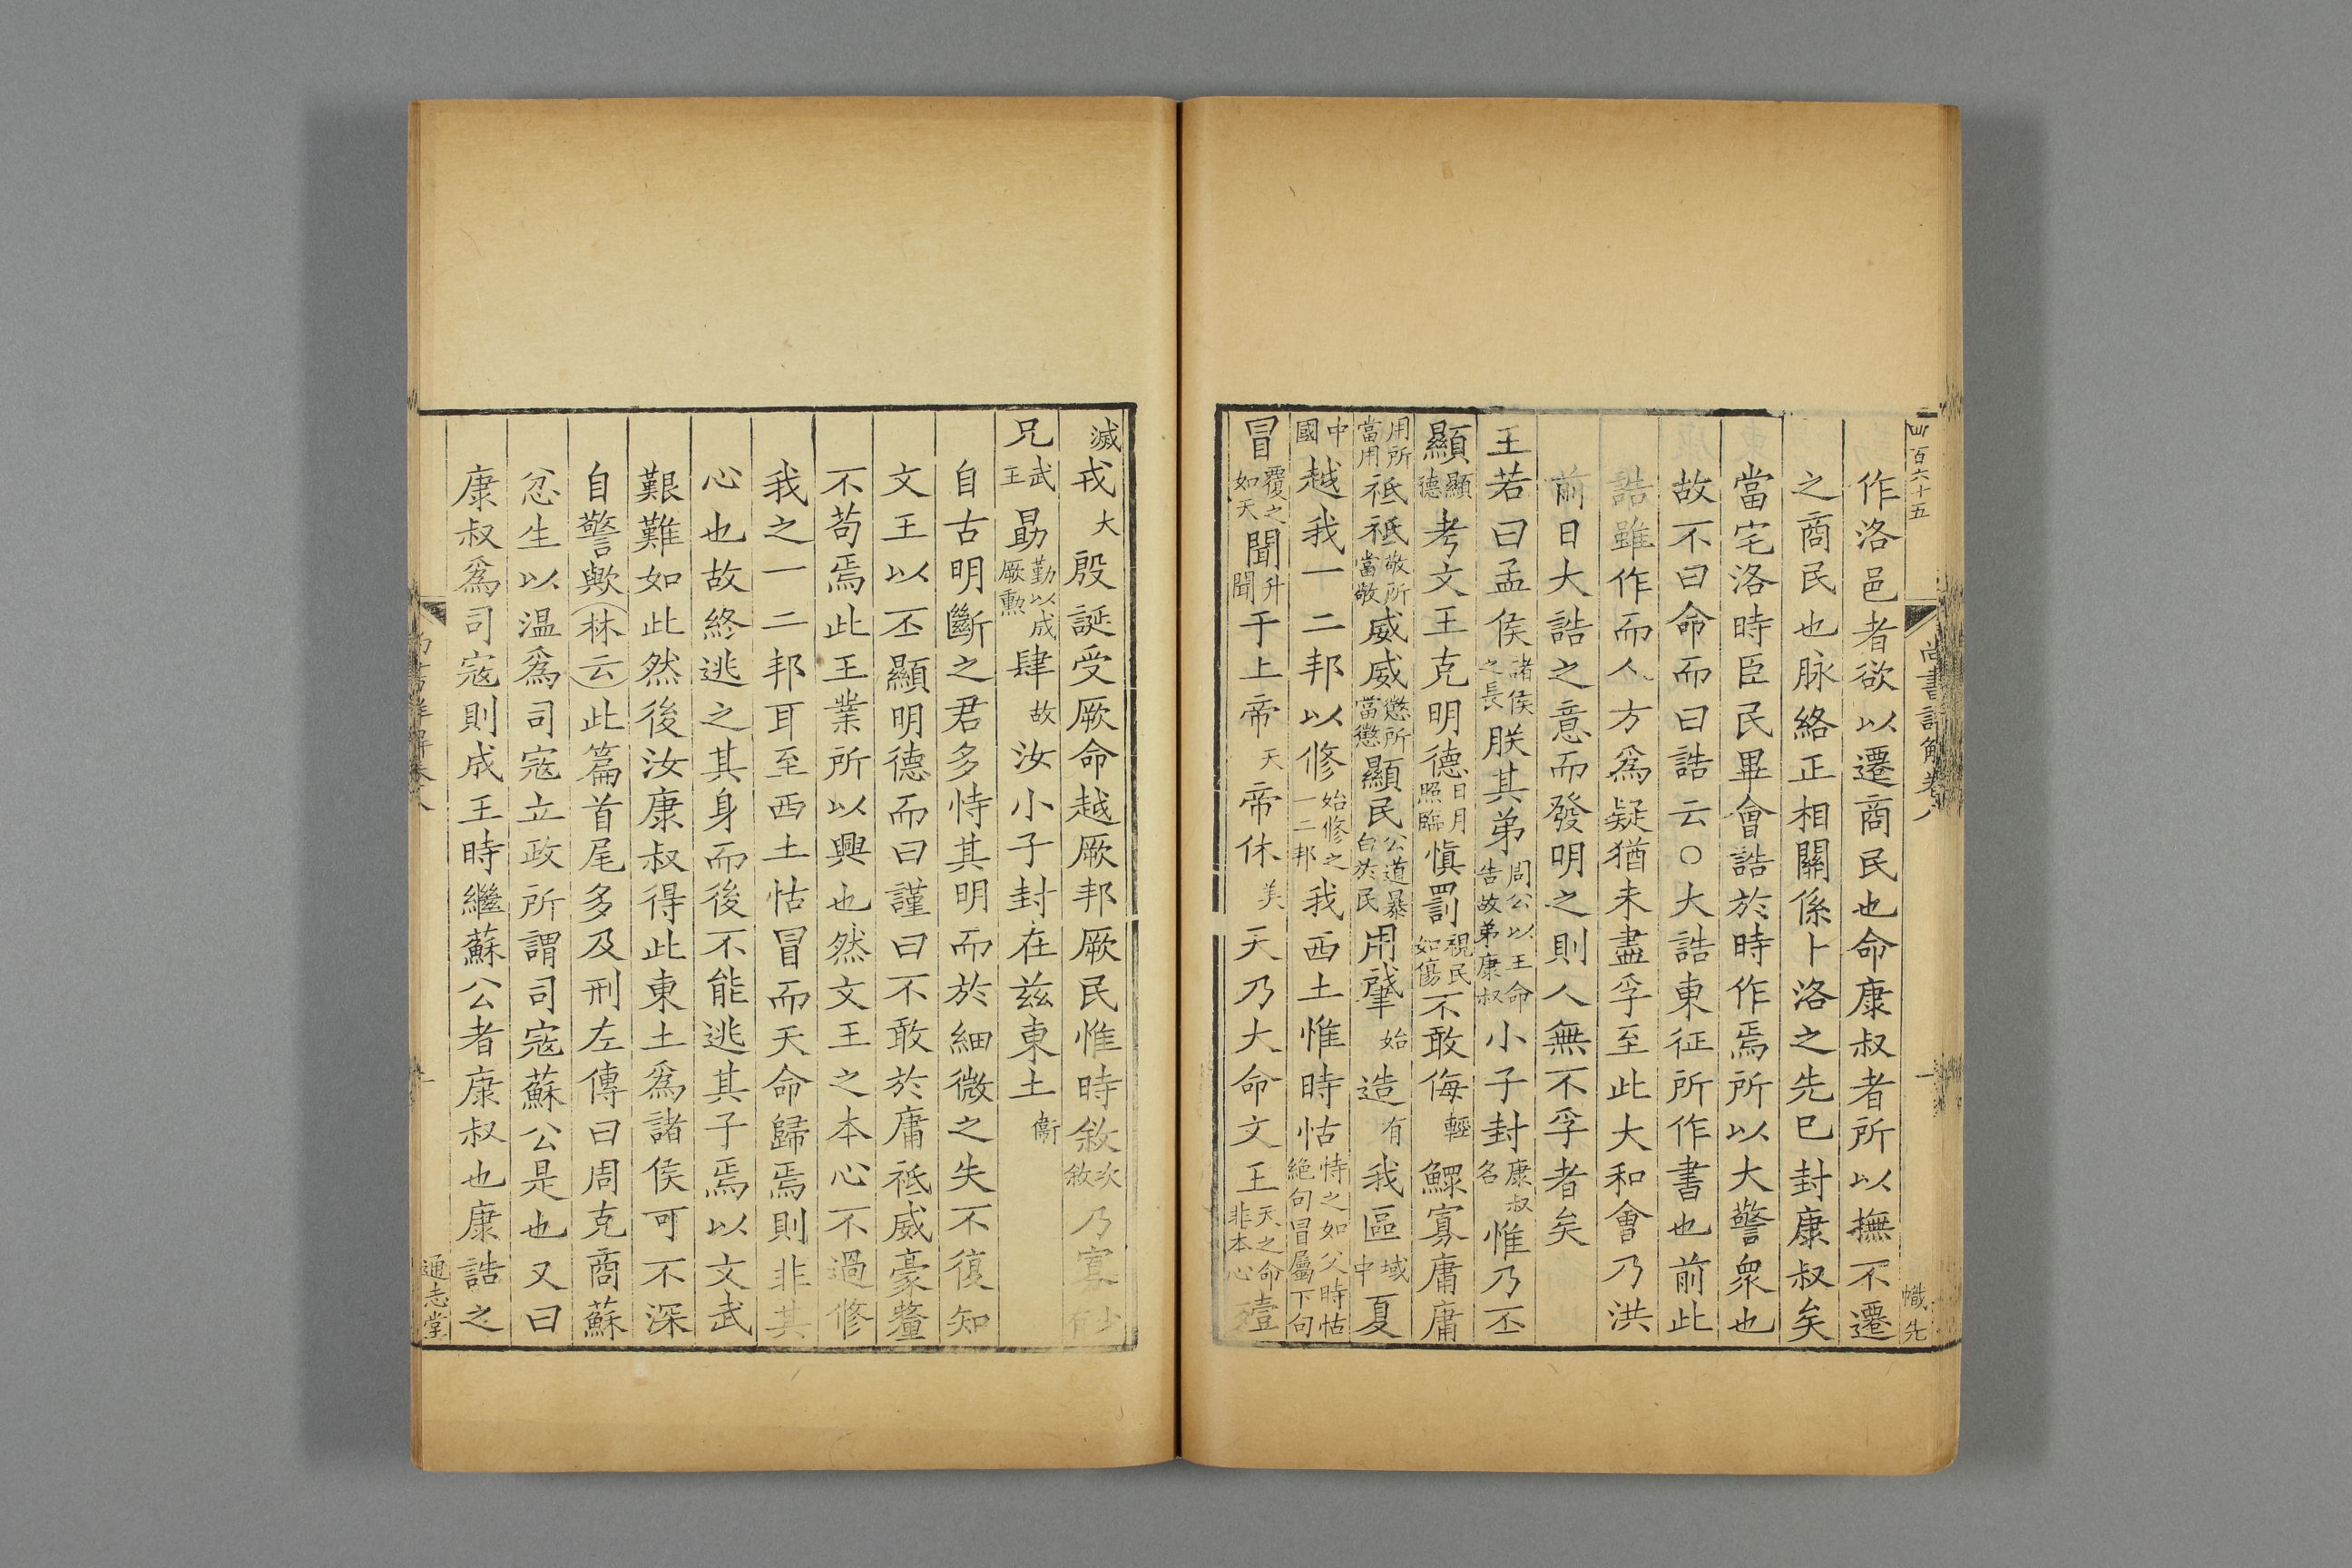 百六十五
尚書詳解卷八
幟先
作洛邑者欲以遷商民也命康叔者所以撫不遷
之商民也脉絡正相關係卜洛之先已封康叔矣
當宅洛時臣民畢會誥於時作焉所以大警衆也
故不曰命而曰誥云○大誥東征所作書也前此
誥雖作而人方爲疑猶未盡孚至此大和會乃洪
前日大誥之意而發明之則人無不孚者矣
王若曰孟侯諸侯之長朕其弟周公以王命告故弟康叔小子封康叔名惟乃丕
顯顯德考文王克明德日月照臨愼罰視民如傷不敢侮輕鰥寡庸庸
用所當用祗祗敬所當敬威威懲所當懲顯民公道暴白於民用肇始造有我區域中夏
中國越我一二邦以修始修之一二邦我西土惟時怙恃之如父時怙絶句冒屬下句
冒覆之如天聞升聞于上帝天帝休美天乃大命文王天之命非本心殪
滅戎大殷誕受厥命越厥邦厥民惟時敘次敘乃寡少有
兄武王勗勤以成厥勲肆故汝小子封在兹東土衞
自古明斷之君多恃其明而於細微之失不復知
文王以丕顯明德而曰謹曰不敢於庸祗威豪釐
不苟焉此王業所以興也然文王之本心不過修
我之一二邦耳至西土怙冒而天命歸焉則非其
心也故終逃之其身而後不能逃其子焉以文武
艱難如此然後汝康叔得此東土爲諸侯可不深
自警歟林云此篇首尾多及刑左傳曰周克商蘇
忿生以温爲司寇立政所謂司寇蘇公是也又曰
康叔爲司寇則成王時繼蘇公者康叔也康誥之
尚書詳解卷八
通志堂